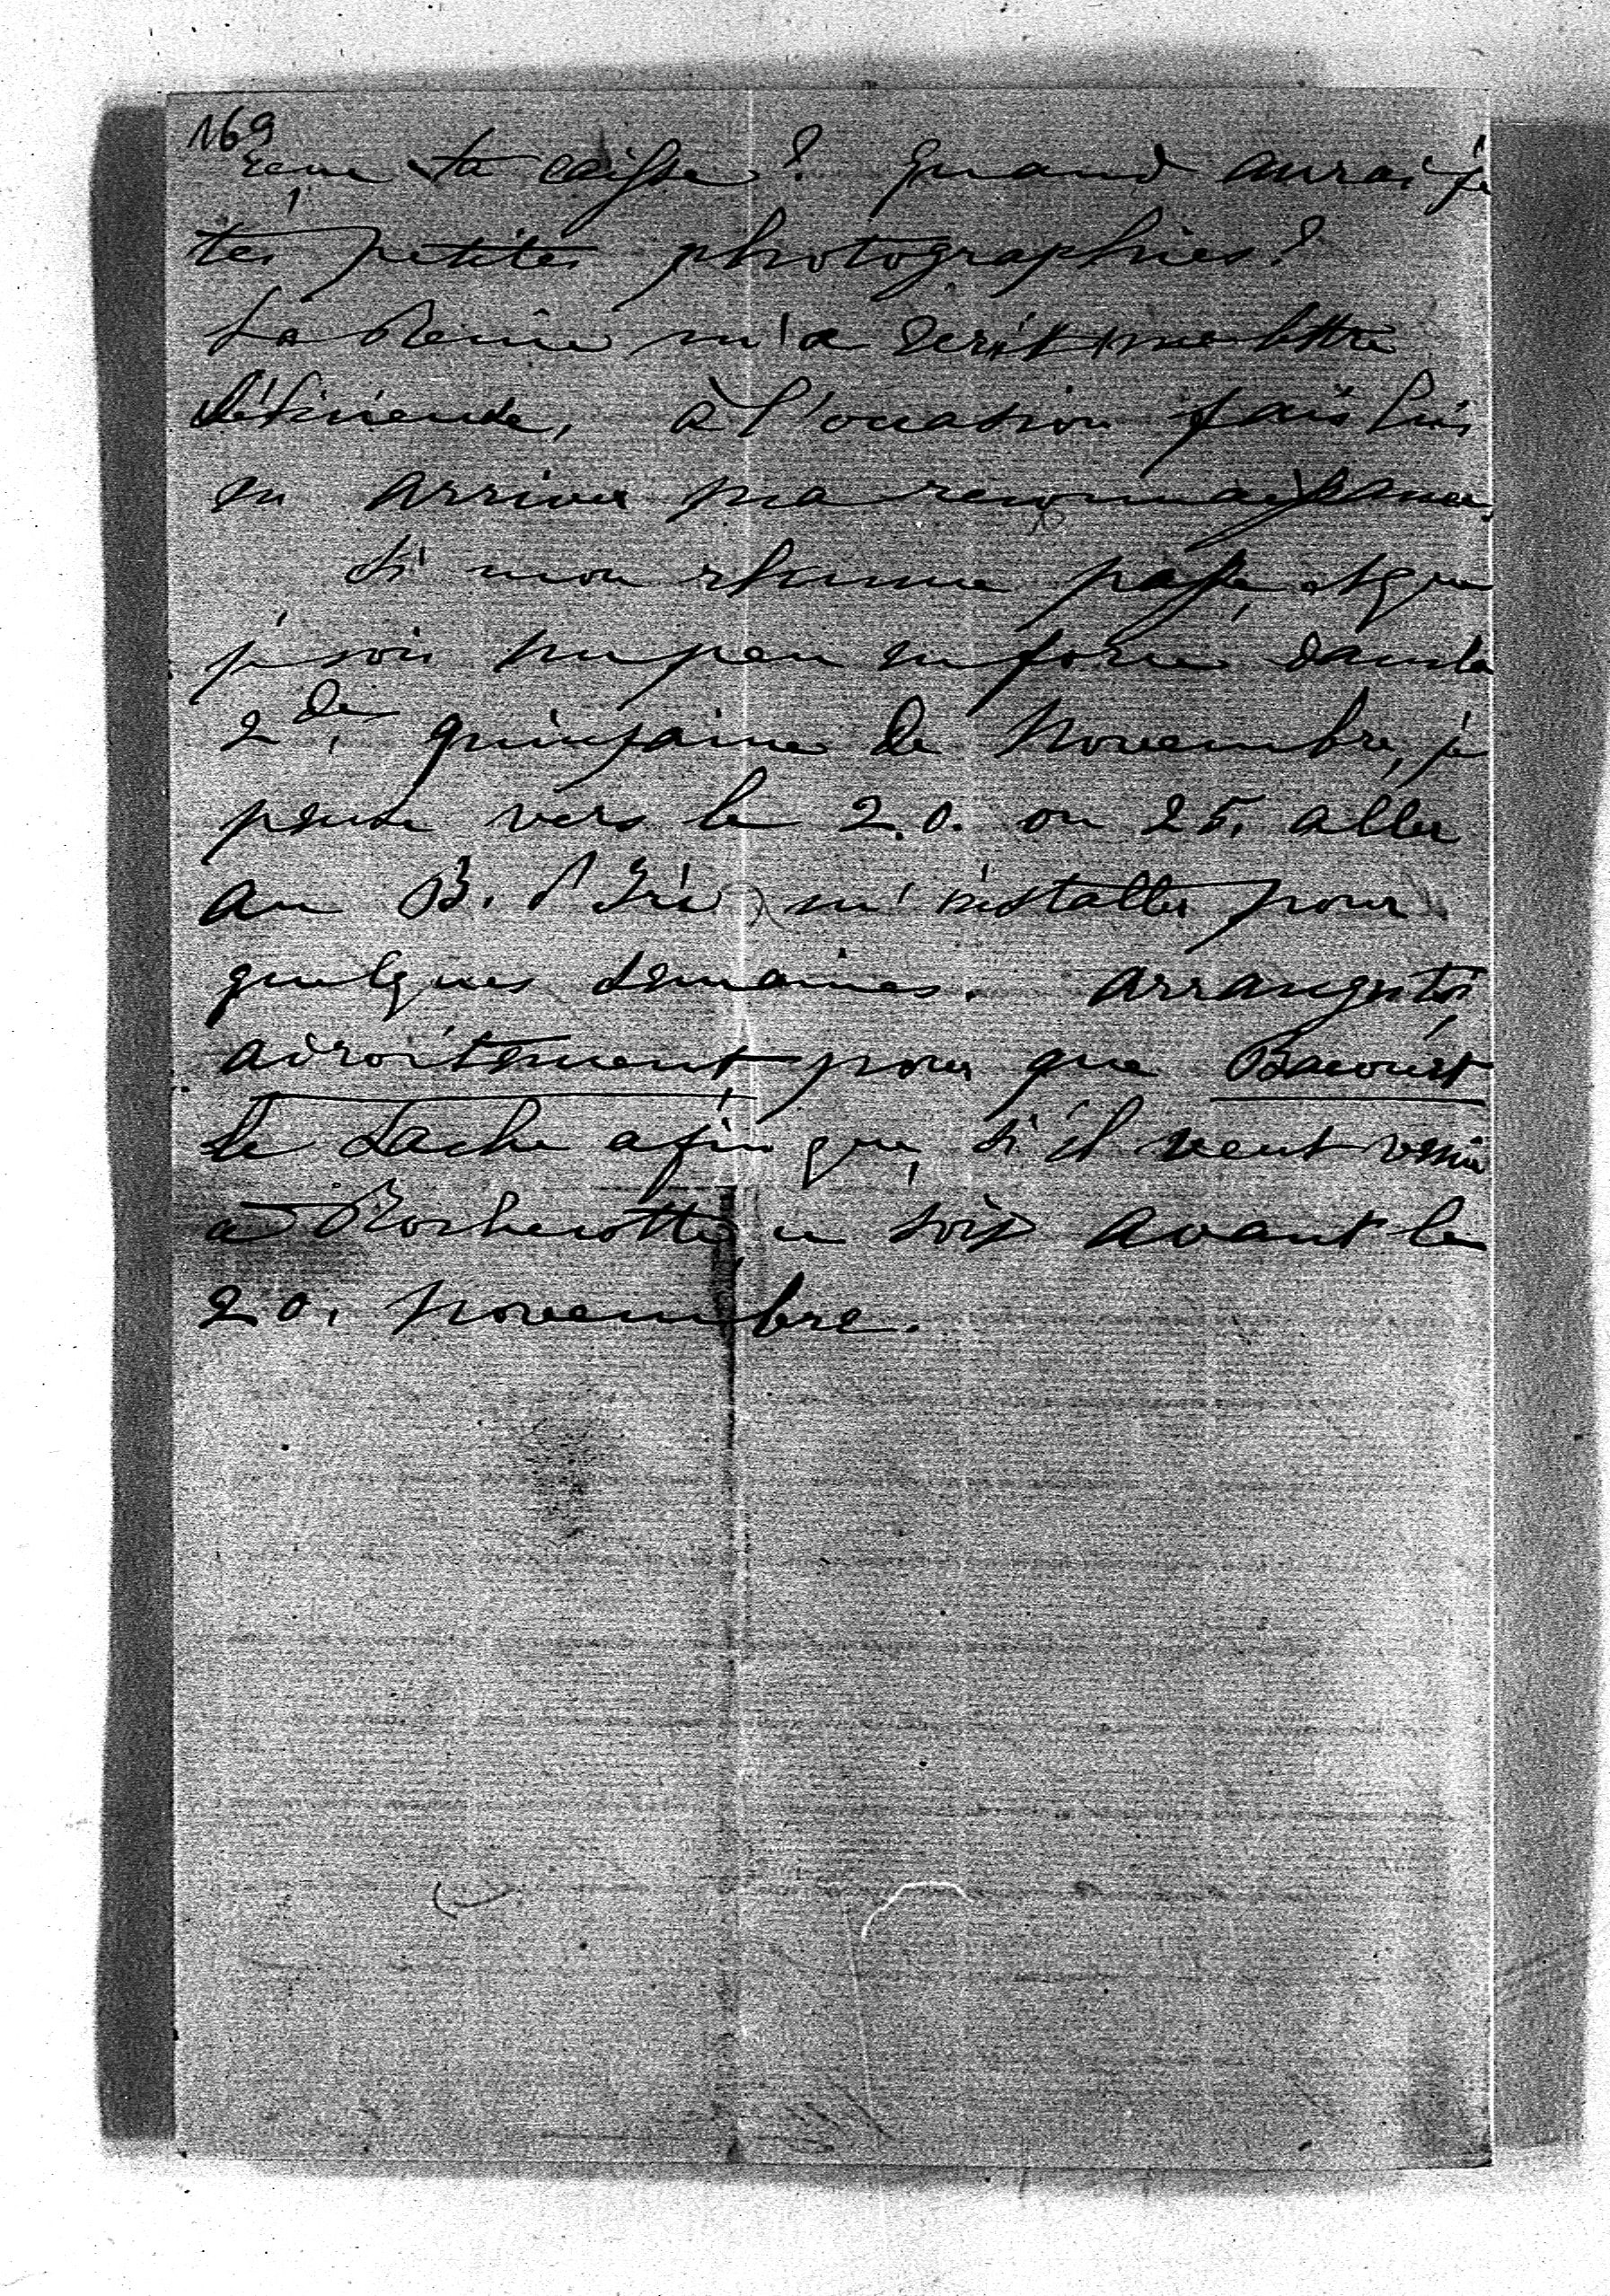 169
reçu ta caisse? Quand aurai je
tes petites photographies?
La Reine m'a écrit une lettre
à l'occasion fais lui
en arriver ma reconnaissance.
Si mon rhume passe, et que
je sois un peu en force dans la
2de. quinzaine de Novembre, je
pense vers le 20. ou 25. aller
au B. m'installer pour
quelques semaines. Arranges toi
adroitement, pour que Bacourt
le sache afin que, s'il veut venir
à Rochecotte ce soit avant le
20. Novembre.